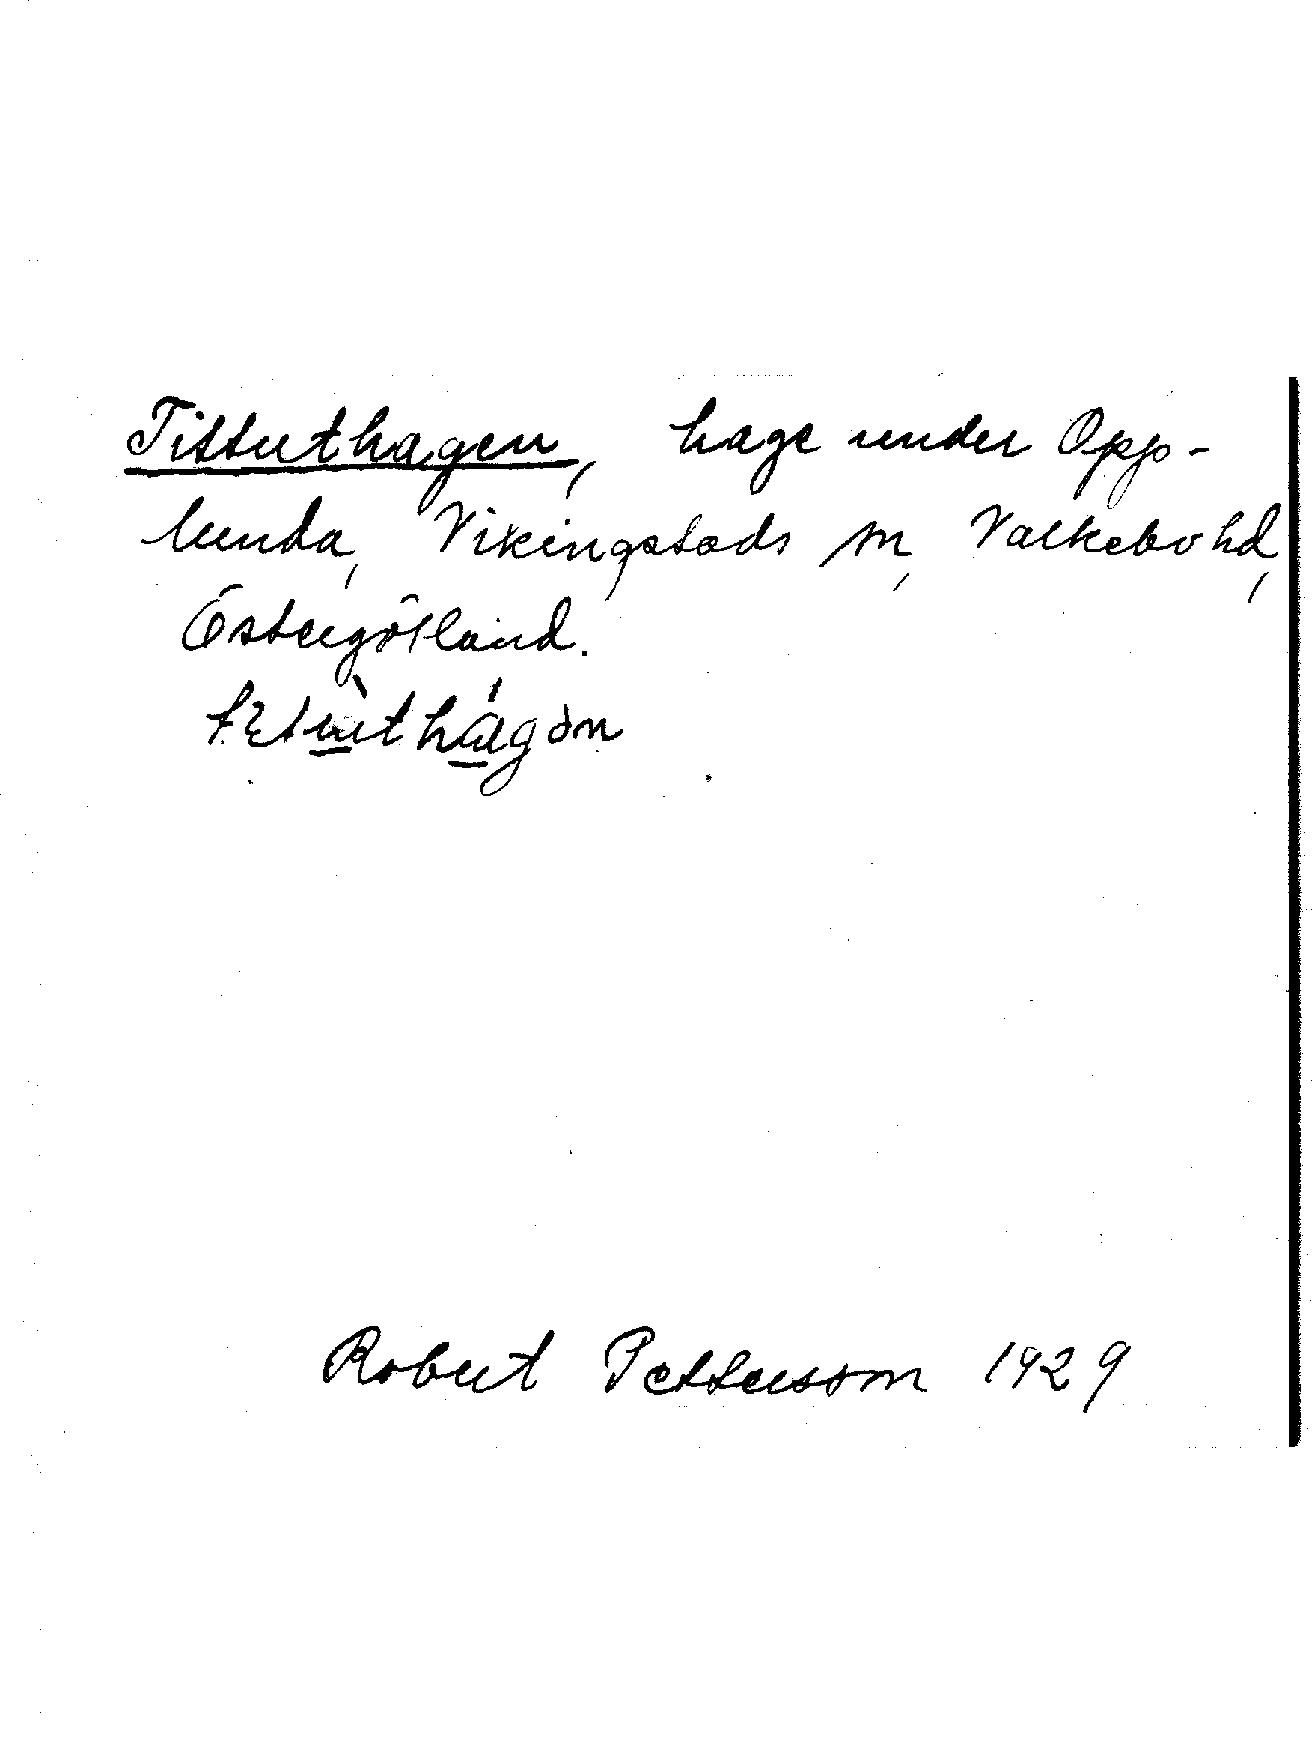 Tittuthagen, hage under Opp-
lunda, Vikingstads sn, Valkebo hd,
Östergötland.
Robert Pettersson 1929